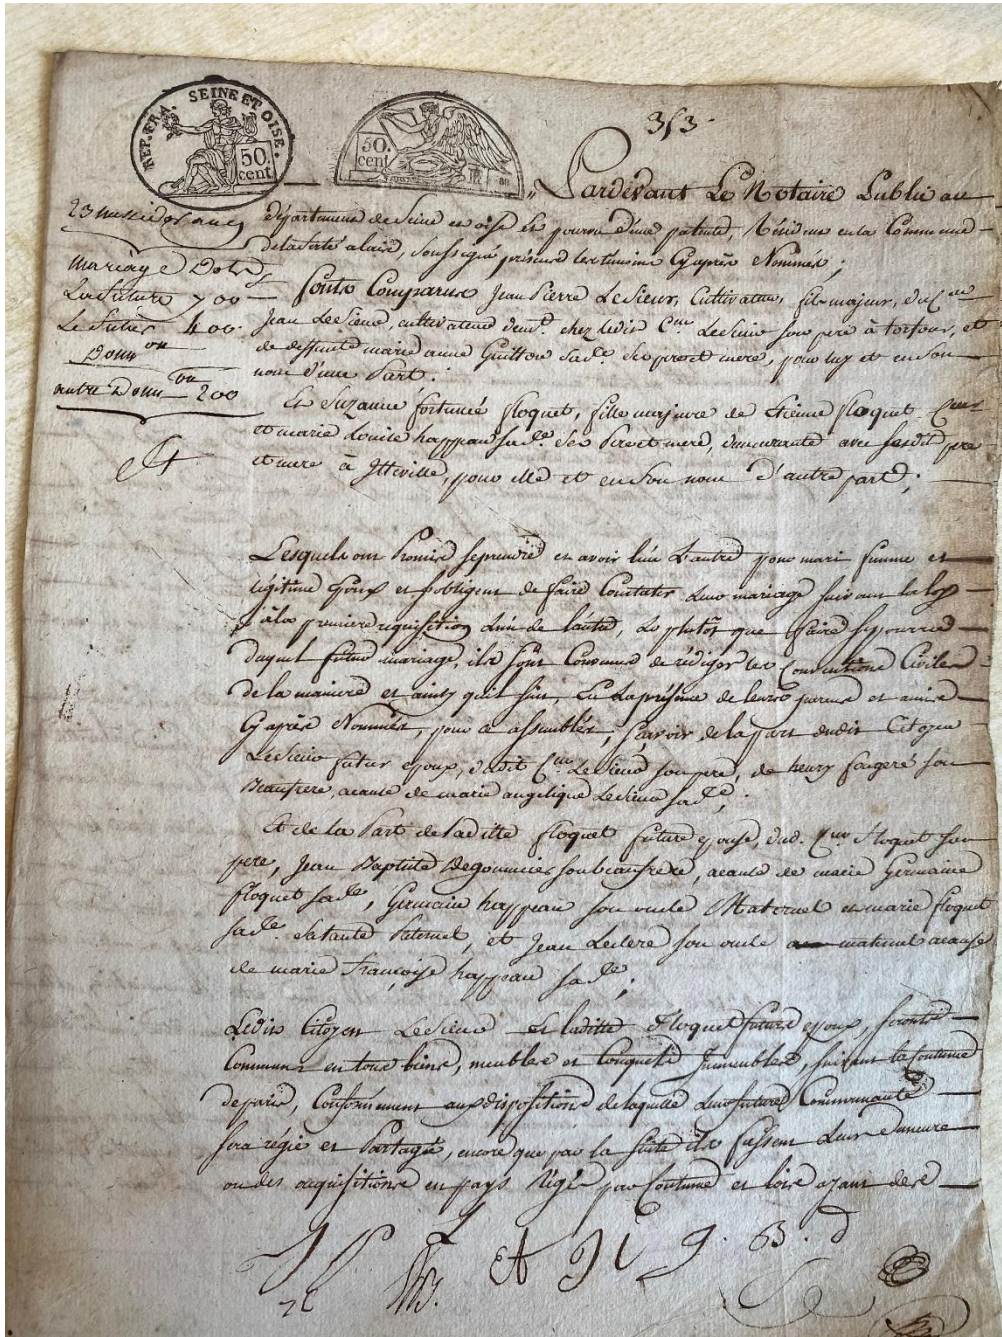 REP. FRA. SEINE ET OISE.
50. cent
50. cent
353.
Pardevant Le Notaire Public au
département de Seine et oise Et pourvu d'une patente, Résident en la Commune
de la ferté alais, soussigné présence les témoins Cyaprès Nommés;
mariage Dot de
La future 700
Le futur 400
Douaire
autre Don 200
Sont Comparus Jean Pierre LeSieur, Cultivateur, fils majeur, du Cen
Jean LeSieur, cultivateur demt. chez ledit Cen LeSieur son pere à torfou, et
de deffunte marie anne Guitton sa de. Ses pere et mere, pour luy et en Son
nom d'une Part.
Et Suzanne fortunée floquet, fille majeure de Etienne floquet
et marie Louise happeau sa de. Ses Pere et mere, demeurante avec sesdit pere
et mere à Itteville, pour elle et en Son nom d'autre part;
Lesquels ont Promis se prendre et avoir l'un L'autre pour mari femme et
légitime Epoux et s'obligent de faire Constater Leur mariage suivant la loy
à la premiere requisition L'un de l'autre, Le plutôt que faire se pourra
duquel futur mariage, ils sont Convenus de rédiger les Conventions Civiles
de la maniere et ainsy qu'il suit, En La présence de leurs parens et amis
Cyaprès Nommés, pour ce assemblés; sçavoir de la part dudit Citoyen
LeSieur futur epoux, dudit Cen LeSieur son pere, de henry fougeré son
Beaufrere, acause de marie angelique LeSieur sa de;
Et de la Part de Laditte floquet future epouse, dud. Cen floquet son
pere, Jean Baptiste Degommier son beaufrere, acause de marie Germaine
floquet sa de, Germain happeau son oncle Maternel et marie floquet
sa de. Sa tante Paternel, et Jean Leclere son oncle maternel acause
de marie françoise happeau sa de;
Ledit Citoyen LeSieur et laditte floquet future epoux, seront
Communs en tous biens, meubles et Conquets Immeubles, suivant la Coutume
de paris, Conformement aux dispositions de laquelle Leur future Communauté
sera régie et Partagée, encore que par la suite ils fussent Leur demeure
ou des acquisitions en pays Régis par Coutumes et loix ayant des